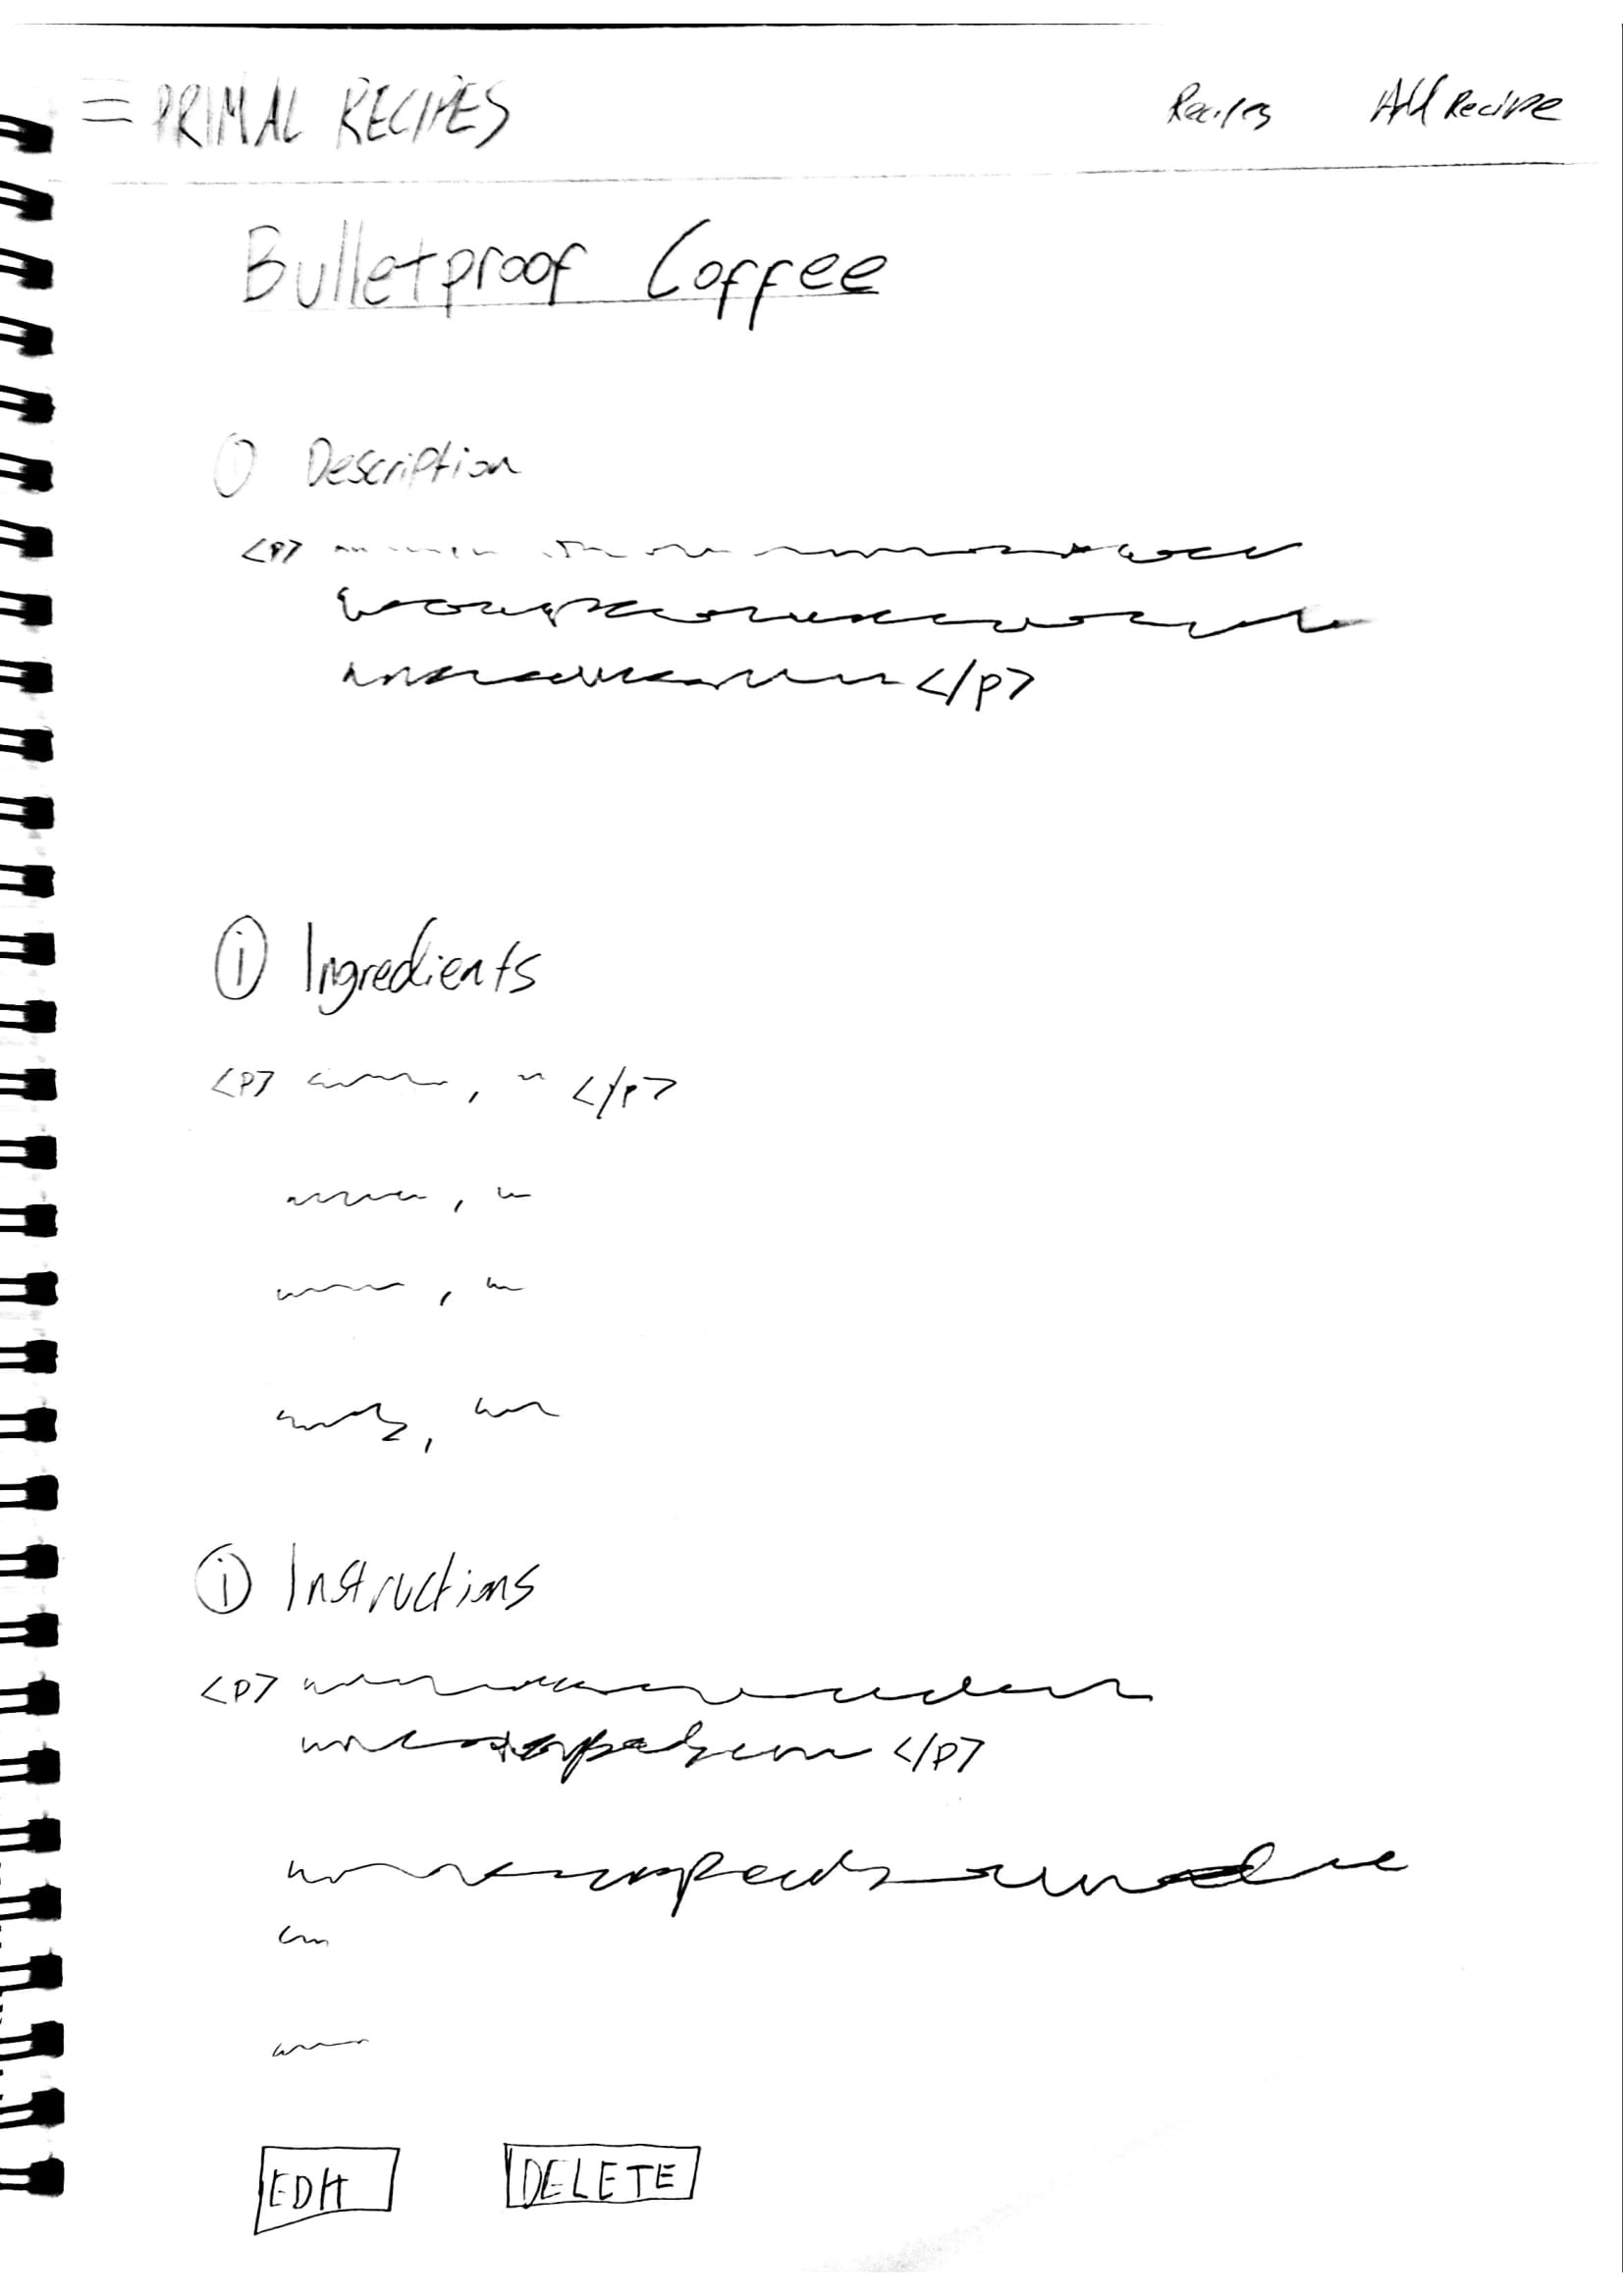 PRIMAL RECIPES Recipes Add Recipe
Bulletproof Coffee
Description
<p>
</p>
i Ingredients
<p> , </p>
,
,
,
i Instructions
<p>
</p>
EDIT DELETE